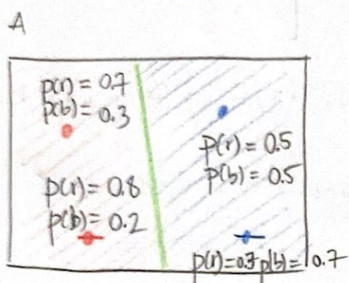 A
p(r) = 0.7
p(b) = 0.3
p(r) = 0.8
p(b) = 0.2
p(r) = 0.5
p(b) = 0.5
p(r)=0.3 p(b)=0.7